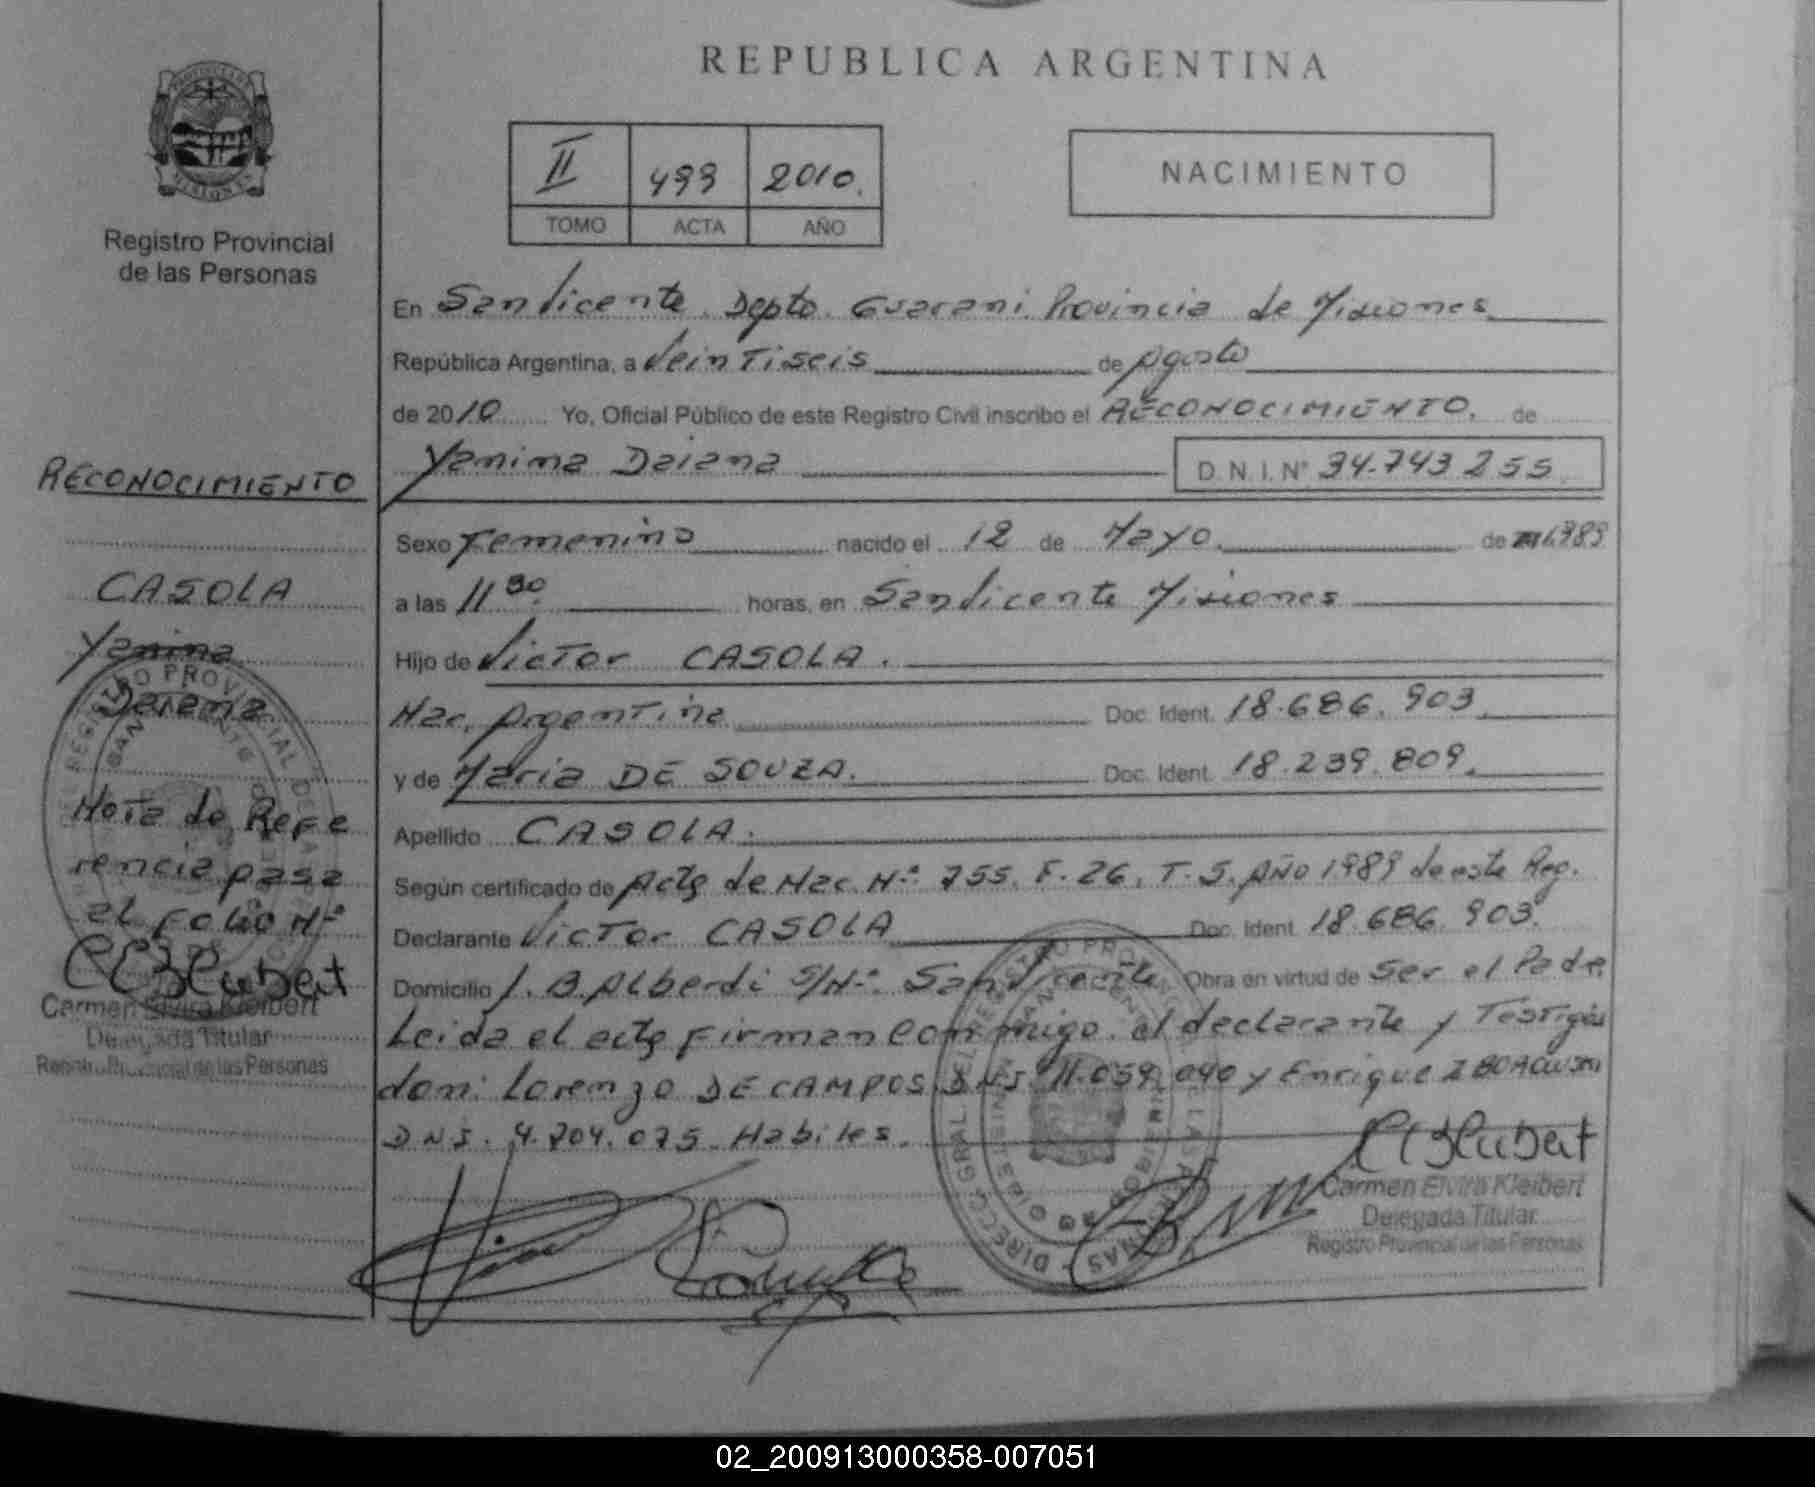 REPUBLICA ARGENTINA
PROVINCIA DE MISIONES
Registro Provincial
de las Personas
II 499 2010.
TOMO ACTA AÑO
NACIMIENTO
En San Vicente. Depto. Guarani. Provincia de Misiones
República Argentina, a Veintiseis de Agosto
de 2010 Yo, Oficial Público de este Registro Civil inscribo el RECONOCIMIENTO. de
Yanina Daiana D. N. I. N° 34.743.255
Sexo Femenino nacido el 12 de Mayo. de 1989
a las 11 30. horas, en San Vicente Misiones
Hijo de Victor CASOLA.
Nac. Argentina Doc. Ident. 18.686.903
y de Maria DE SOUZA. Doc. Ident. 18.239.809.
Apellido CASOLA.
Según certificado de Acta de Nac. Nº 755. F. 26. T. 5. AÑO 1989 de este Reg.
Declarante Victor CASOLA Doc. Ident. 18.686.903.
Domicilio J. B. Alberdi S/Nº. San Vicente Obra en virtud de Ser el Padre
Leida el acta Firman Conmigo el declarante y Testigos
don: Lorenzo DE CAMPOS. D.N.I. 11.059.040 y Enrique
D.N.I. 4.704.075. Habiles.
Carmen Elvira Kleibert
Delegada Titular
Registro Provincial de las Personas
RECONOCIMIENTO
CASOLA
Yanina
Daiana
Nota de Refe
rencia pasa
al Folio Nº
Carmen Elvira Kleibert
Delegada Titular
Registro Provincial de las Personas
02_200913000358-007051